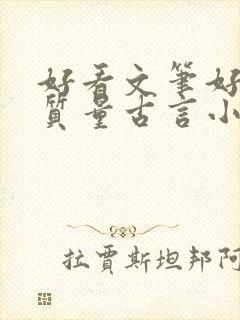 好看文笔好
质量古言小
拉贾斯坦邦阿